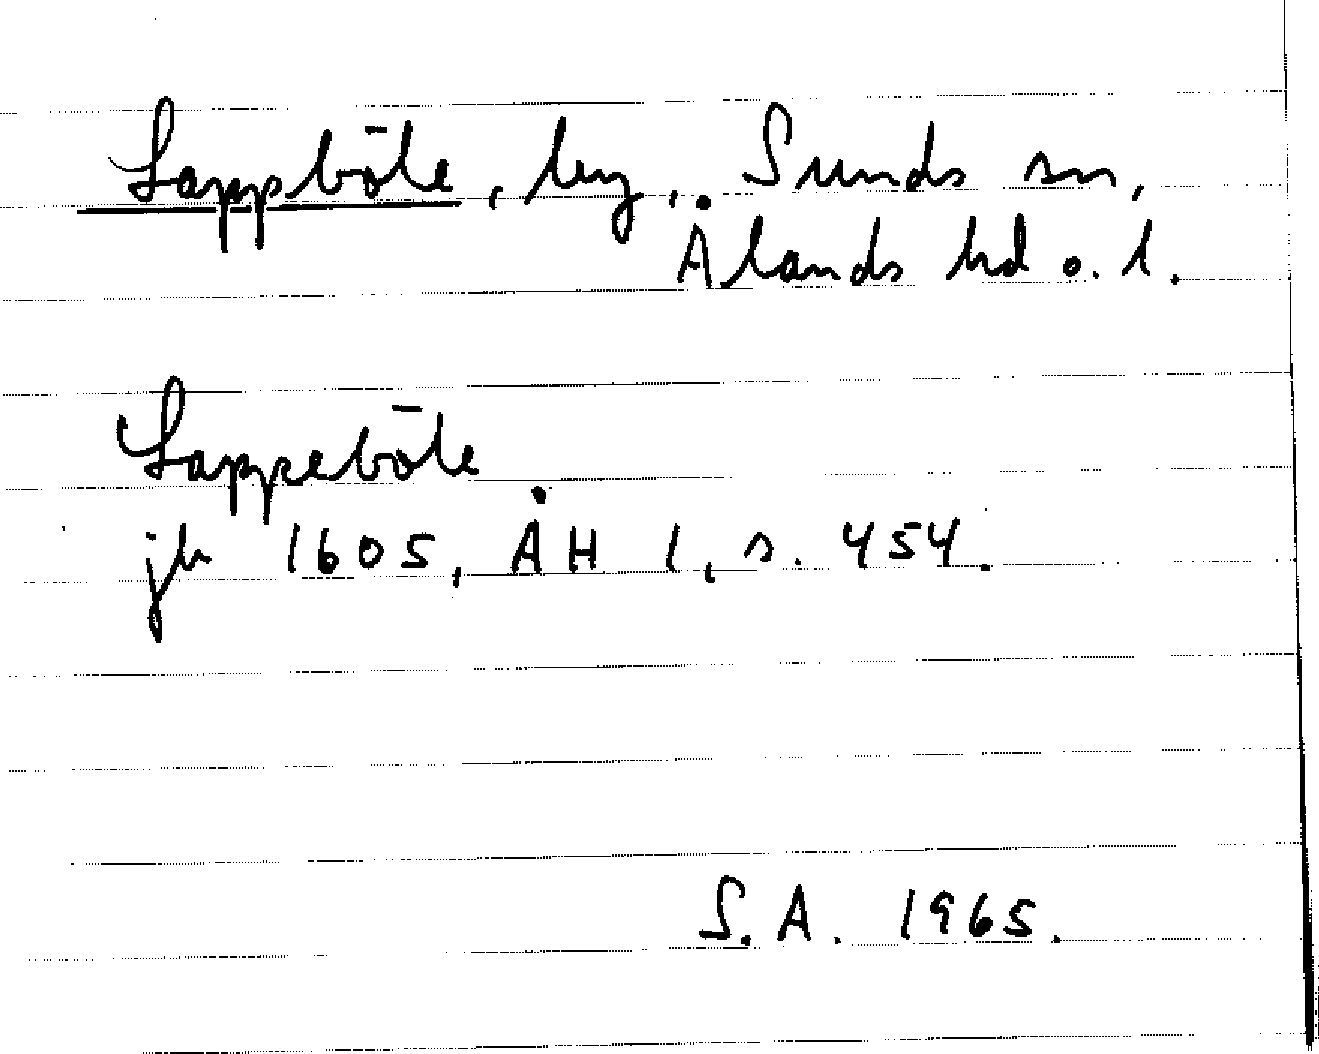 Lappböle, by, Sunds sn,
Ålands hd o. l.
Lappeböle
jb 1605, ÅH 1, s. 454.
S.A. 1965.